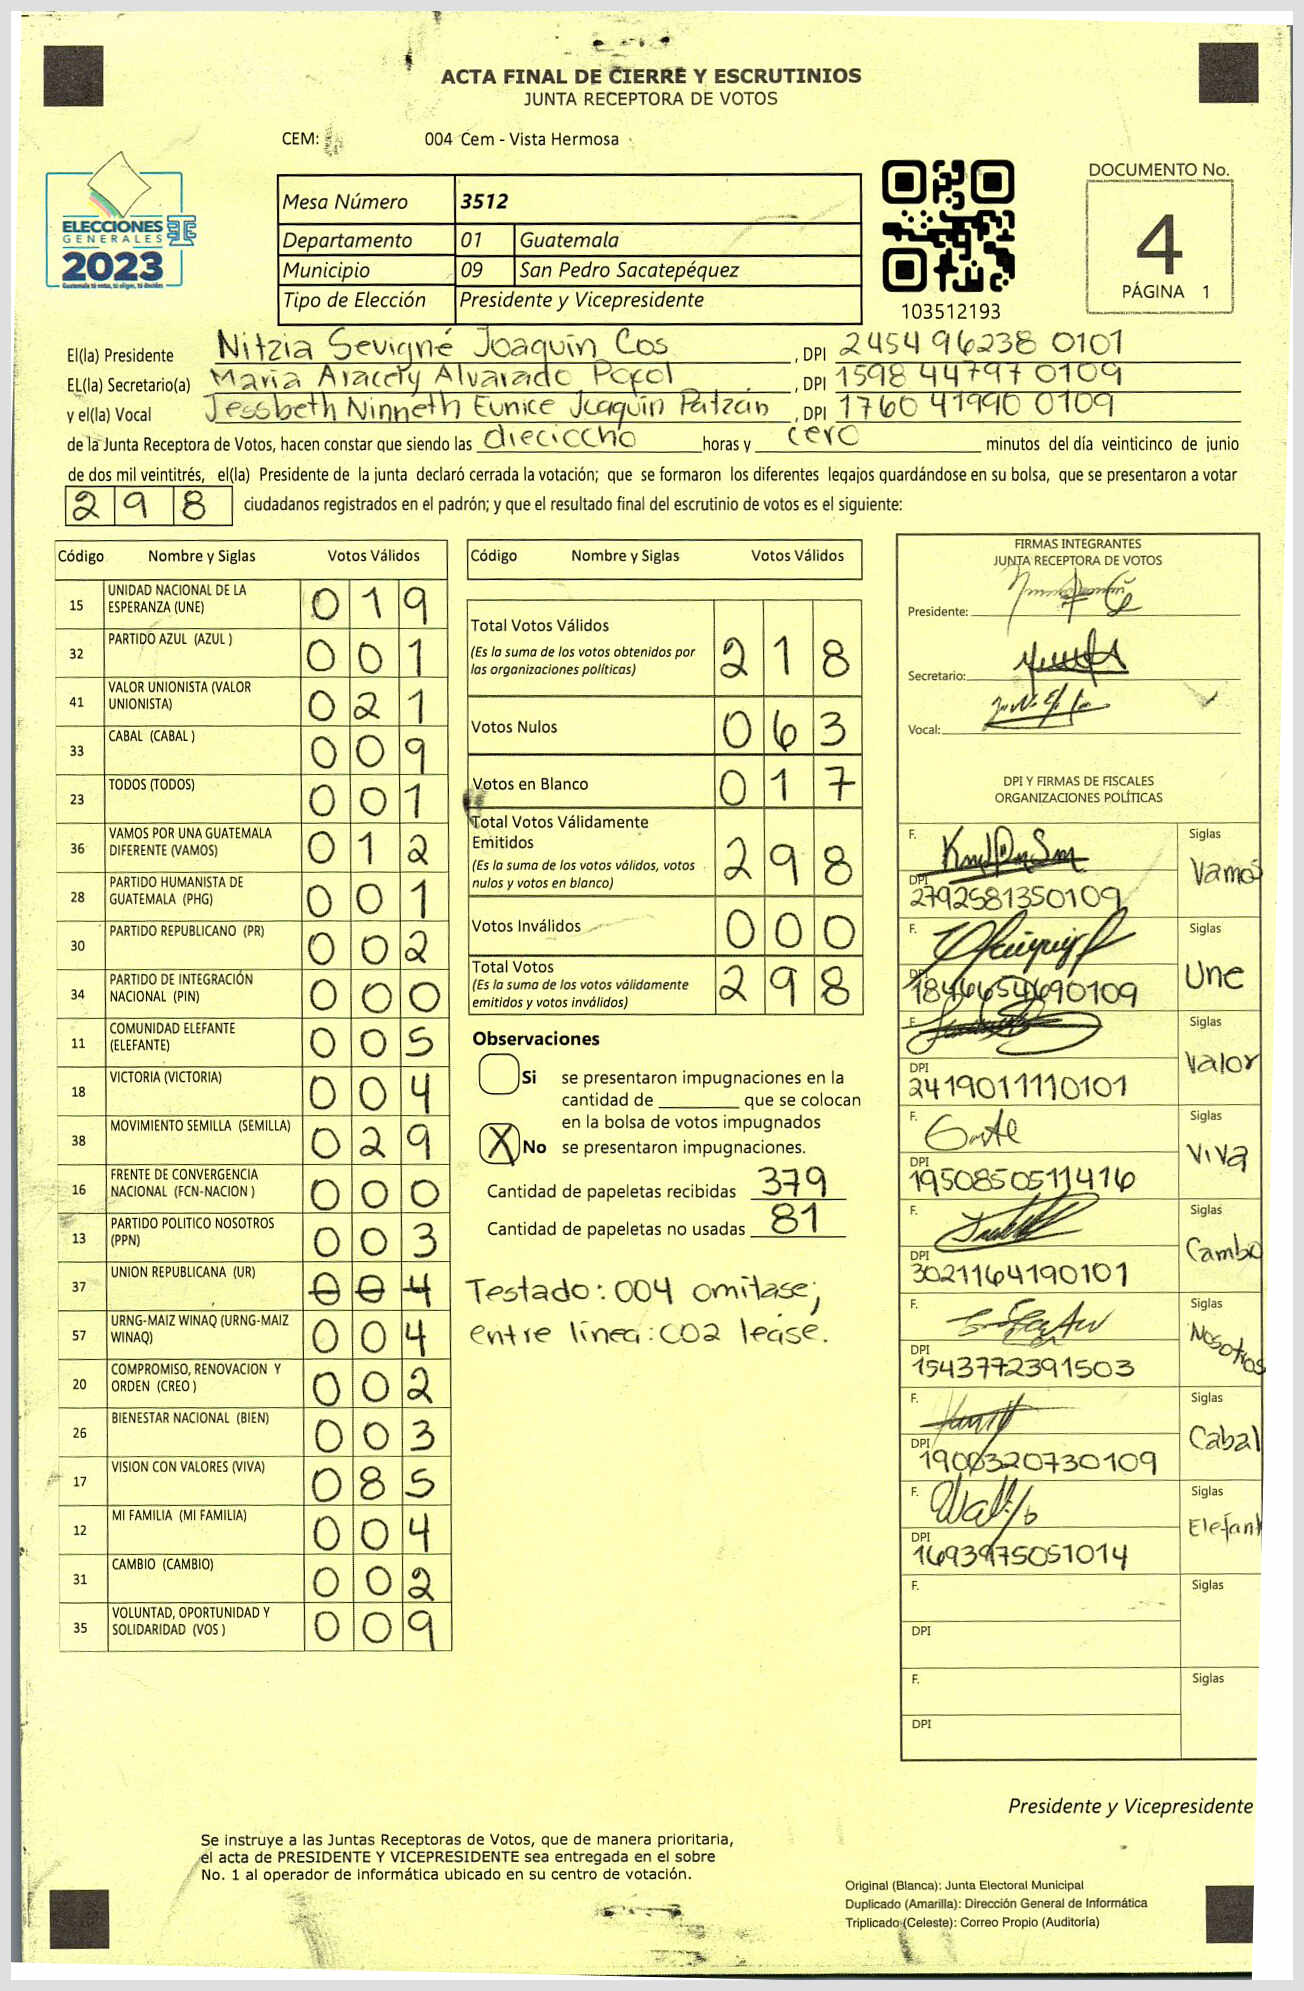 ACTA FINAL DE CIERRE Y ESCRUTINIOS
JUNTA RECEPTORA DE VOTOS
CEM: 004 Cem - Vista Hermosa
ELECCIONES
GENERALES
2023
Guatemala tú votas, tú eliges, tú decides
Mesa Número 3512
Departamento 01 Guatemala
Municipio 09 San Pedro Sacatepéquez
Tipo de Elección Presidente y Vicepresidente
103512193
DOCUMENTO No.
4
PÁGINA 1
El(la) Presidente Nitzia Sevigné Joaquín Cos , DPI 2454 96238 0101
EL(la) Secretario(a) María Aracely Alvarado Popol , DPI 1598 44797 0109
y el(la) Vocal Jessbeth Ninneth Eunice Joaquín Patzán , DPI 1760 41990 0109
de la Junta Receptora de Votos, hacen constar que siendo las dieciocho horas y cero minutos del día veinticinco de junio
de dos mil veintitrés, el(la) Presidente de la junta declaró cerrada la votación; que se formaron los diferentes legajos quardándose en su bolsa, que se presentaron a votar
298 ciudadanos registrados en el padrón; y que el resultado final del escrutinio de votos es el siguiente:
Código Nombre y Siglas Votos Válidos
15 UNIDAD NACIONAL DE LA ESPERANZA (UNE) 019
32 PARTIDO AZUL (AZUL ) 001
41 VALOR UNIONISTA (VALOR UNIONISTA) 021
33 CABAL (CABAL ) 009
23 TODOS (TODOS) 001
36 VAMOS POR UNA GUATEMALA DIFERENTE (VAMOS) 012
28 PARTIDO HUMANISTA DE GUATEMALA (PHG) 001
30 PARTIDO REPUBLICANO (PR) 002
34 PARTIDO DE INTEGRACIÓN NACIONAL (PIN) 000
11 COMUNIDAD ELEFANTE (ELEFANTE) 005
18 VICTORIA (VICTORIA) 004
38 MOVIMIENTO SEMILLA (SEMILLA) 029
16 FRENTE DE CONVERGENCIA NACIONAL (FCN-NACION ) 000
13 PARTIDO POLITICO NOSOTROS (PPN) 003
37 UNION REPUBLICANA (UR) 004
57 URNG-MAIZ WINAQ (URNG-MAIZ WINAQ) 004
20 COMPROMISO, RENOVACION Y ORDEN (CREO ) 002
26 BIENESTAR NACIONAL (BIEN) 003
17 VISION CON VALORES (VIVA) 085
12 MI FAMILIA (MI FAMILIA) 004
31 CAMBIO (CAMBIO) 002
35 VOLUNTAD, OPORTUNIDAD Y SOLIDARIDAD (VOS ) 009
Código Nombre y Siglas Votos Válidos
Total Votos Válidos 218
(Es la suma de los votos obtenidos por
las organizaciones políticas)
Votos Nulos 063
Votos en Blanco 017
Total Votos Válidamente
Emitidos 298
(Es la suma de los votos válidos, votos
nulos y votos en blanco)
Votos Inválidos 000
Total Votos 298
(Es la suma de los votos válidamente
emitidos y votos inválidos)
Observaciones
Si se presentaron impugnaciones en la
cantidad de ________ que se colocan
en la bolsa de votos impugnados
X No se presentaron impugnaciones.
Cantidad de papeletas recibidas 379
Cantidad de papeletas no usadas 81
Testado: 004 omitase;
entre línea: 002 lease.
FIRMAS INTEGRANTES
JUNTA RECEPTORA DE VOTOS
Presidente:
Secretario:
Vocal:
DPI Y FIRMAS DE FISCALES
ORGANIZACIONES POLÍTICAS
F. Siglas Vamos
DPI 2792581350109
F. Siglas Une
DPI
F. Siglas Valor
DPI 2419011110101
F. Siglas Viva
DPI 1950850511416
F. Siglas Cambo
DPI 3021164190101
F. Siglas Nosotros
DPI 1543772391503
F. Siglas Cabal
DPI 1900320730109
F. Siglas Elefant
DPI 1693975051014
F. Siglas
DPI
F. Siglas
DPI
Presidente y Vicepresidente
Se instruye a las Juntas Receptoras de Votos, que de manera prioritaria,
el acta de PRESIDENTE Y VICEPRESIDENTE sea entregada en el sobre
No. 1 al operador de informática ubicado en su centro de votación.
Original (Blanca): Junta Electoral Municipal
Duplicado (Amarilla): Dirección General de Informática
Triplicado (Celeste): Correo Propio (Auditoría)